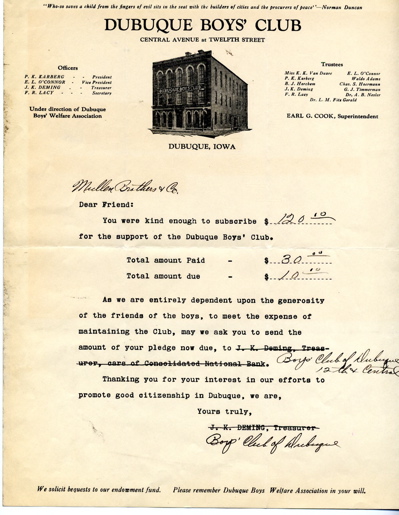 "Who-so saves a child from the fingers of evil sits in the seat with the builders of cities and the procurers of peace"—Norman Duncan
DUBUQUE BOYS' CLUB
CENTRAL AVENUE at TWELFTH STREET
Officers
P. K. KARBERG - - President
E. L. O'CONNOR - Vice President
J. K. DEMING - - Treasurer
F. R. LACY - - Secretary
Under direction of Dubuque
Boys' Welfare Association
Trustees
Miss E. K. Van Duzee E. L. O'Connor
P. K. Karberg Waldo Adams
B. J. Horchem Chas. S. Harrmann
J. K. Deming G. J. Zimmerman
F. R. Lacy Dr. A. B. Nesler
Dr. L. M. Fitz Gerald
EARL G. COOK, Superintendent
DUBUQUE, IOWA
Mullen Brothers & Co.
Dear Friend:
You were kind enough to subscribe $ 120.00
for the support of the Dubuque Boys' Club.
Total amount Paid - $ 30.00
Total amount due - $ 10.00
As we are entirely dependent upon the generosity
of the friends of the boys, to meet the expense of
maintaining the Club, may we ask you to send the
amount of your pledge now due, to J. K. Deming, Treas-
urer, care of Consolidated National Bank. Boys Club of Dubuque
12th & Central
Thanking you for your interest in our efforts to
promote good citizenship in Dubuque, we are,
Yours truly,
J. K. DEMING, Treasurer
Boys' Club of Dubuque
We solicit bequests to our endowment fund. Please remember Dubuque Boys Welfare Association in your will.